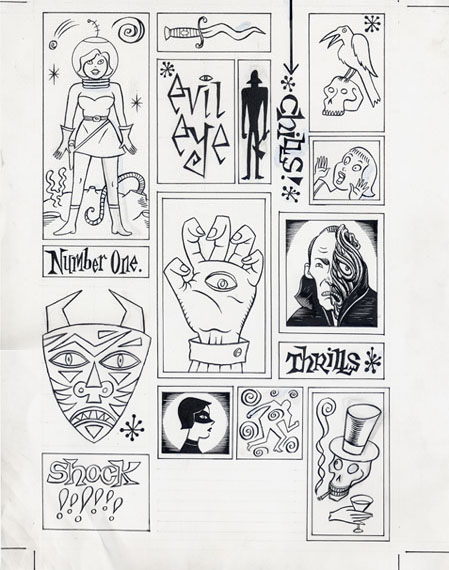 evil
eye
chills!
Number One.
THRILLS
Shock
!!!!!!